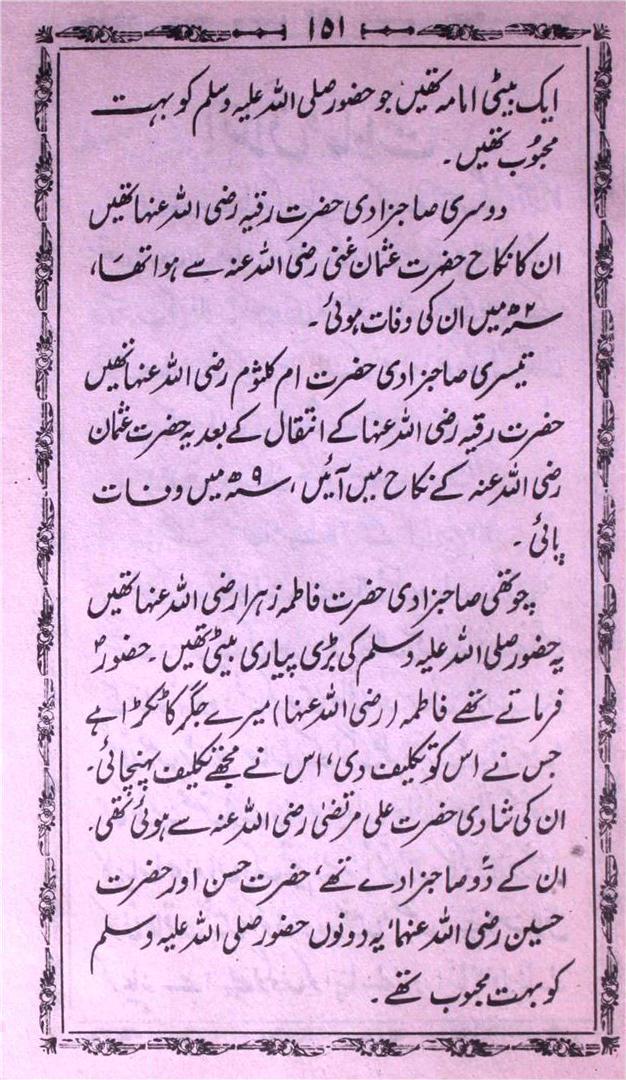 ۱۵۱
ایک بیٹی امامہ تھیں جو حضور صلی اللہ علیہ وسلم کو بہت
محبوب تھیں۔
دوسری صاحبزادی حضرت رقیہ رضی اللہ عنہا تھیں
ان کا نکاح حضرت عثمان غنی رضی اللہ عنہ سے ہوا تھا،
سنہ ۲ھ میں ان کی وفات ہوئی۔
تیسری صاحبزادی حضرت ام کلثوم رضی اللہ عنہا تھیں
حضرت رقیہ رضی اللہ عنہا کے انتقال کے بعد یہ حضرت عثمان
رضی اللہ عنہ کے نکاح میں آئیں، سنہ ۹ھ میں وفات
پائی۔
چوتھی صاحبزادی حضرت فاطمہ زہرا رضی اللہ عنہا تھیں
یہ حضور صلی اللہ علیہ وسلم کی بڑی پیاری بیٹی تھیں۔ حضورؐ
فرماتے تھے فاطمہ (رضی اللہ عنہا) میرے جگر کا ٹکڑا ہے
جس نے اس کو تکلیف دی، اس نے مجھے تکلیف پہنچائی۔
ان کی شادی حضرت علی مرتضی رضی اللہ عنہ سے ہوئی تھی۔
ان کے دُو صاحبزادے تھے، حضرت حسن اور حضرت
حسین رضی اللہ عنہما، یہ دونوں حضور صلی اللہ علیہ وسلم
کو بہت محبوب تھے۔